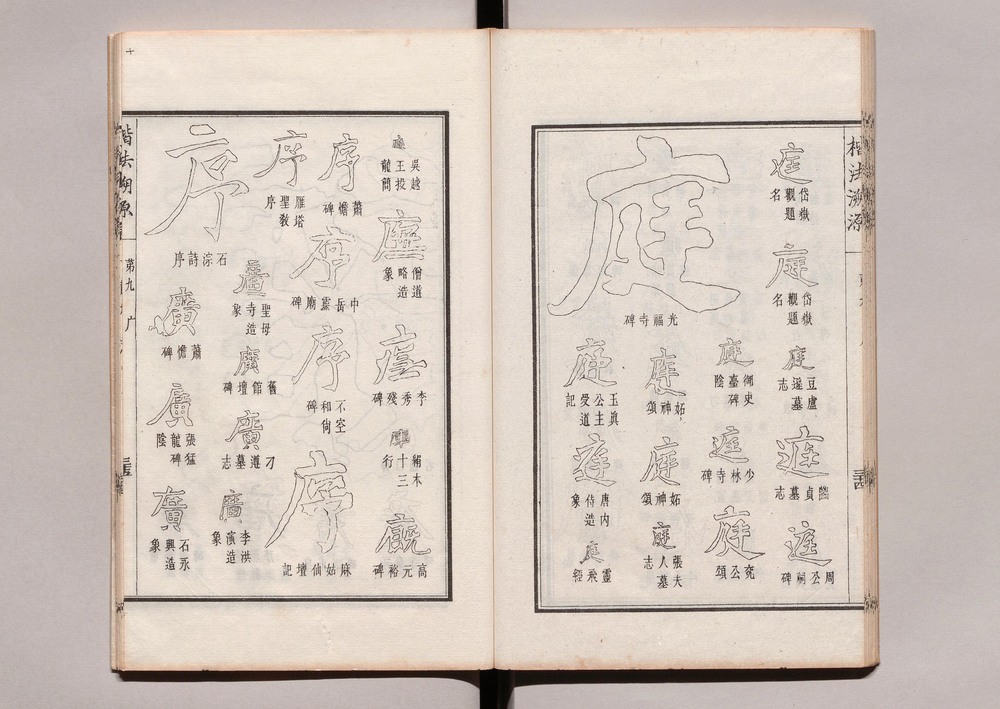 楷法溯源
庭
岱嶽觀題名
庭
岱嶽觀題名
庭
豆盧遜墓志
庭
貞墓志
庭
周公祠碑
庭
光福寺碑
庭
御史臺碑陰
庭
少林寺碑
庭
兗公頌
庭
妬神頌
庭
妬神頌
庭
張夫人墓志
庭
玉眞公主受道記
庭
唐内侍造象
庭
靈飛經
庭
吳越王投龍簡
僧道略造象
廕
李秀殘碑
絹木十三行
高元裕碑
序
蕭憺碑
序
中岳靈廟碑
序
不空和尙碑
序
麻姑仙壇記
序
雁塔聖教序
聖母寺造象
廣
舊館壇碑
廣
刁遵墓志
廣
李洪演造象
序
石淙詩序
廣
蕭憺碑
廣
張猛龍碑陰
廣
石永興造象
楷法溯源
第九
广